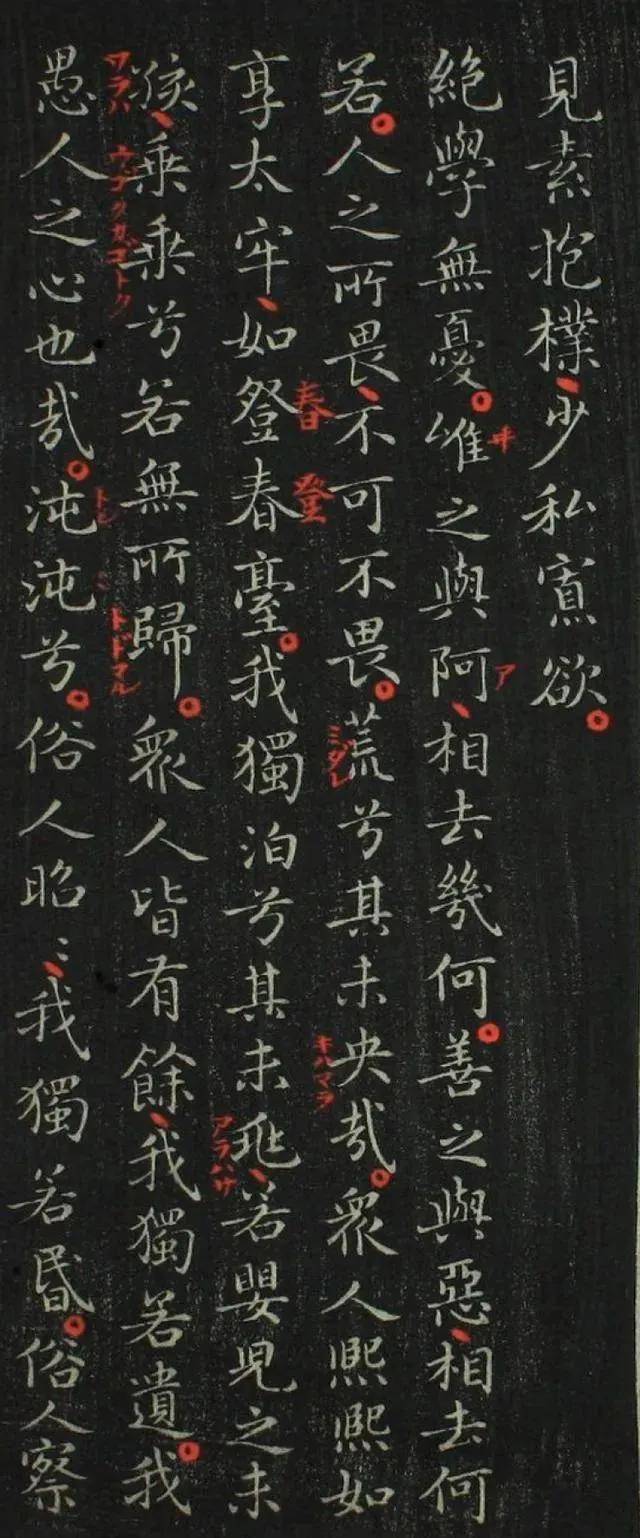 見素抱樸、少私寡欲。
絕學無憂。唯之與阿、相去幾何。善之與惡、相去何
ヰ
ア
若。人之所畏、不可不畏。荒兮其未央哉。衆人熙熙如
ミダレ
キハマラ
享太牢、如登春臺。我獨泊兮其未兆、若嬰兒之未
春
登
アラハサ
孩、乗乗兮若無所歸。衆人皆有餘、我獨若遺。我
ワラハ
ウゴクガゴトク
トドマル
愚人之心也哉。沌沌兮。俗人昭〻、我獨若昏。俗人察
トン